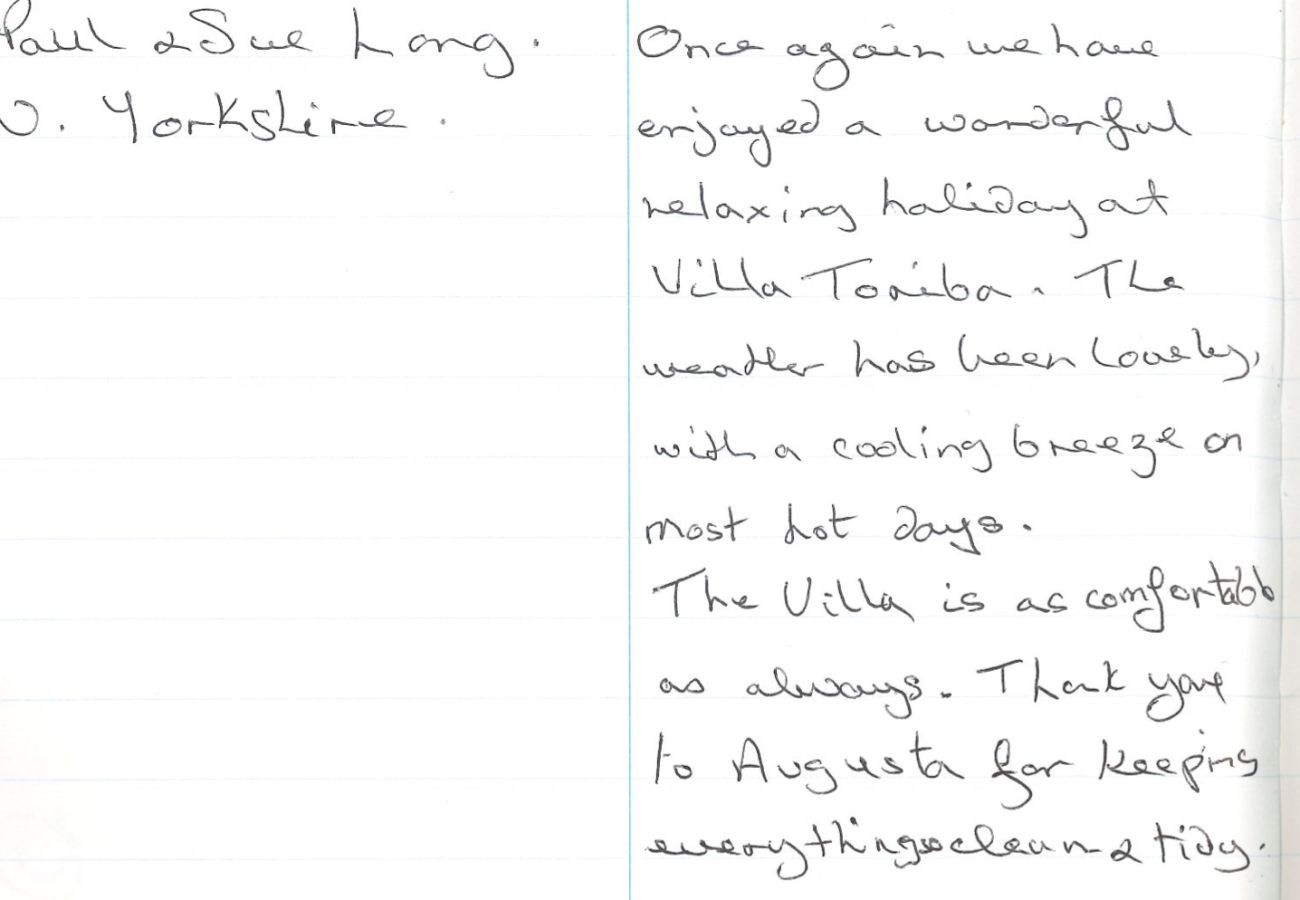 Paul & Sue Long.
. Yorkshire.
Once again we have
enjoyed a wonderful
relaxing holiday at
Villa Toriba. The
weather has been lovely,
with a cooling breeze on
most hot days.
The Villa is as comfortable
as always. Thank you
to Augusta for keeping
everything so clean & tidy.